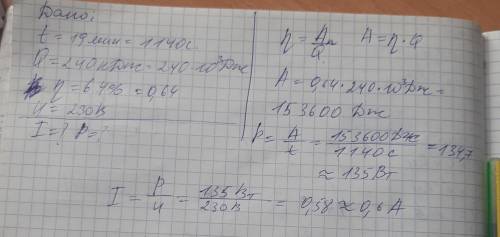 Дано:
t = 19 мин = 1140с
Q = 240 кДж = 240·10³Дж
η = 64% = 0,64
U = 230В
I = ? P = ?
η = Aп/Q A = η·Q
A = 0,64·240·10³Дж =
153600 Дж
P = A/t = 153600Дж/1140с = 134,7
≈ 135Вт
I = P/U = 135Вт/230В = 0,58 ≈ 0,6 А